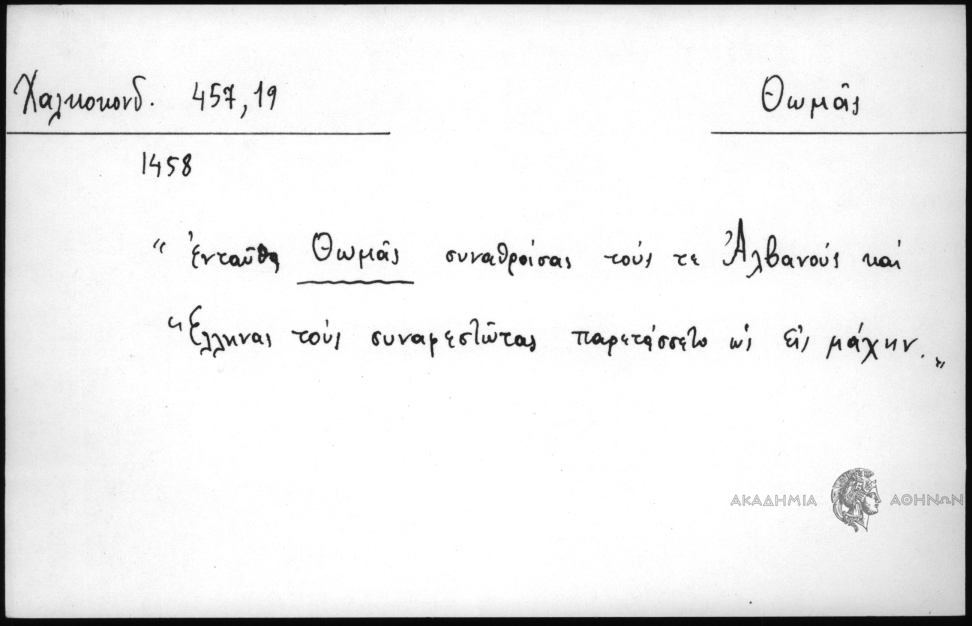 Χαλκοκονδ. 457,19
Θωμᾶς
1458
“ ἐνταῦθα Θωμᾶς συναθροίσας τούς τε Ἀλβανούς καί
“Ελληνας τούς συναφεστῶτας παρετάσσετο ὡς εἰς μάχην.„
ΑΚΑΔΗΜΙΑ ΑΘΗΝΩΝ